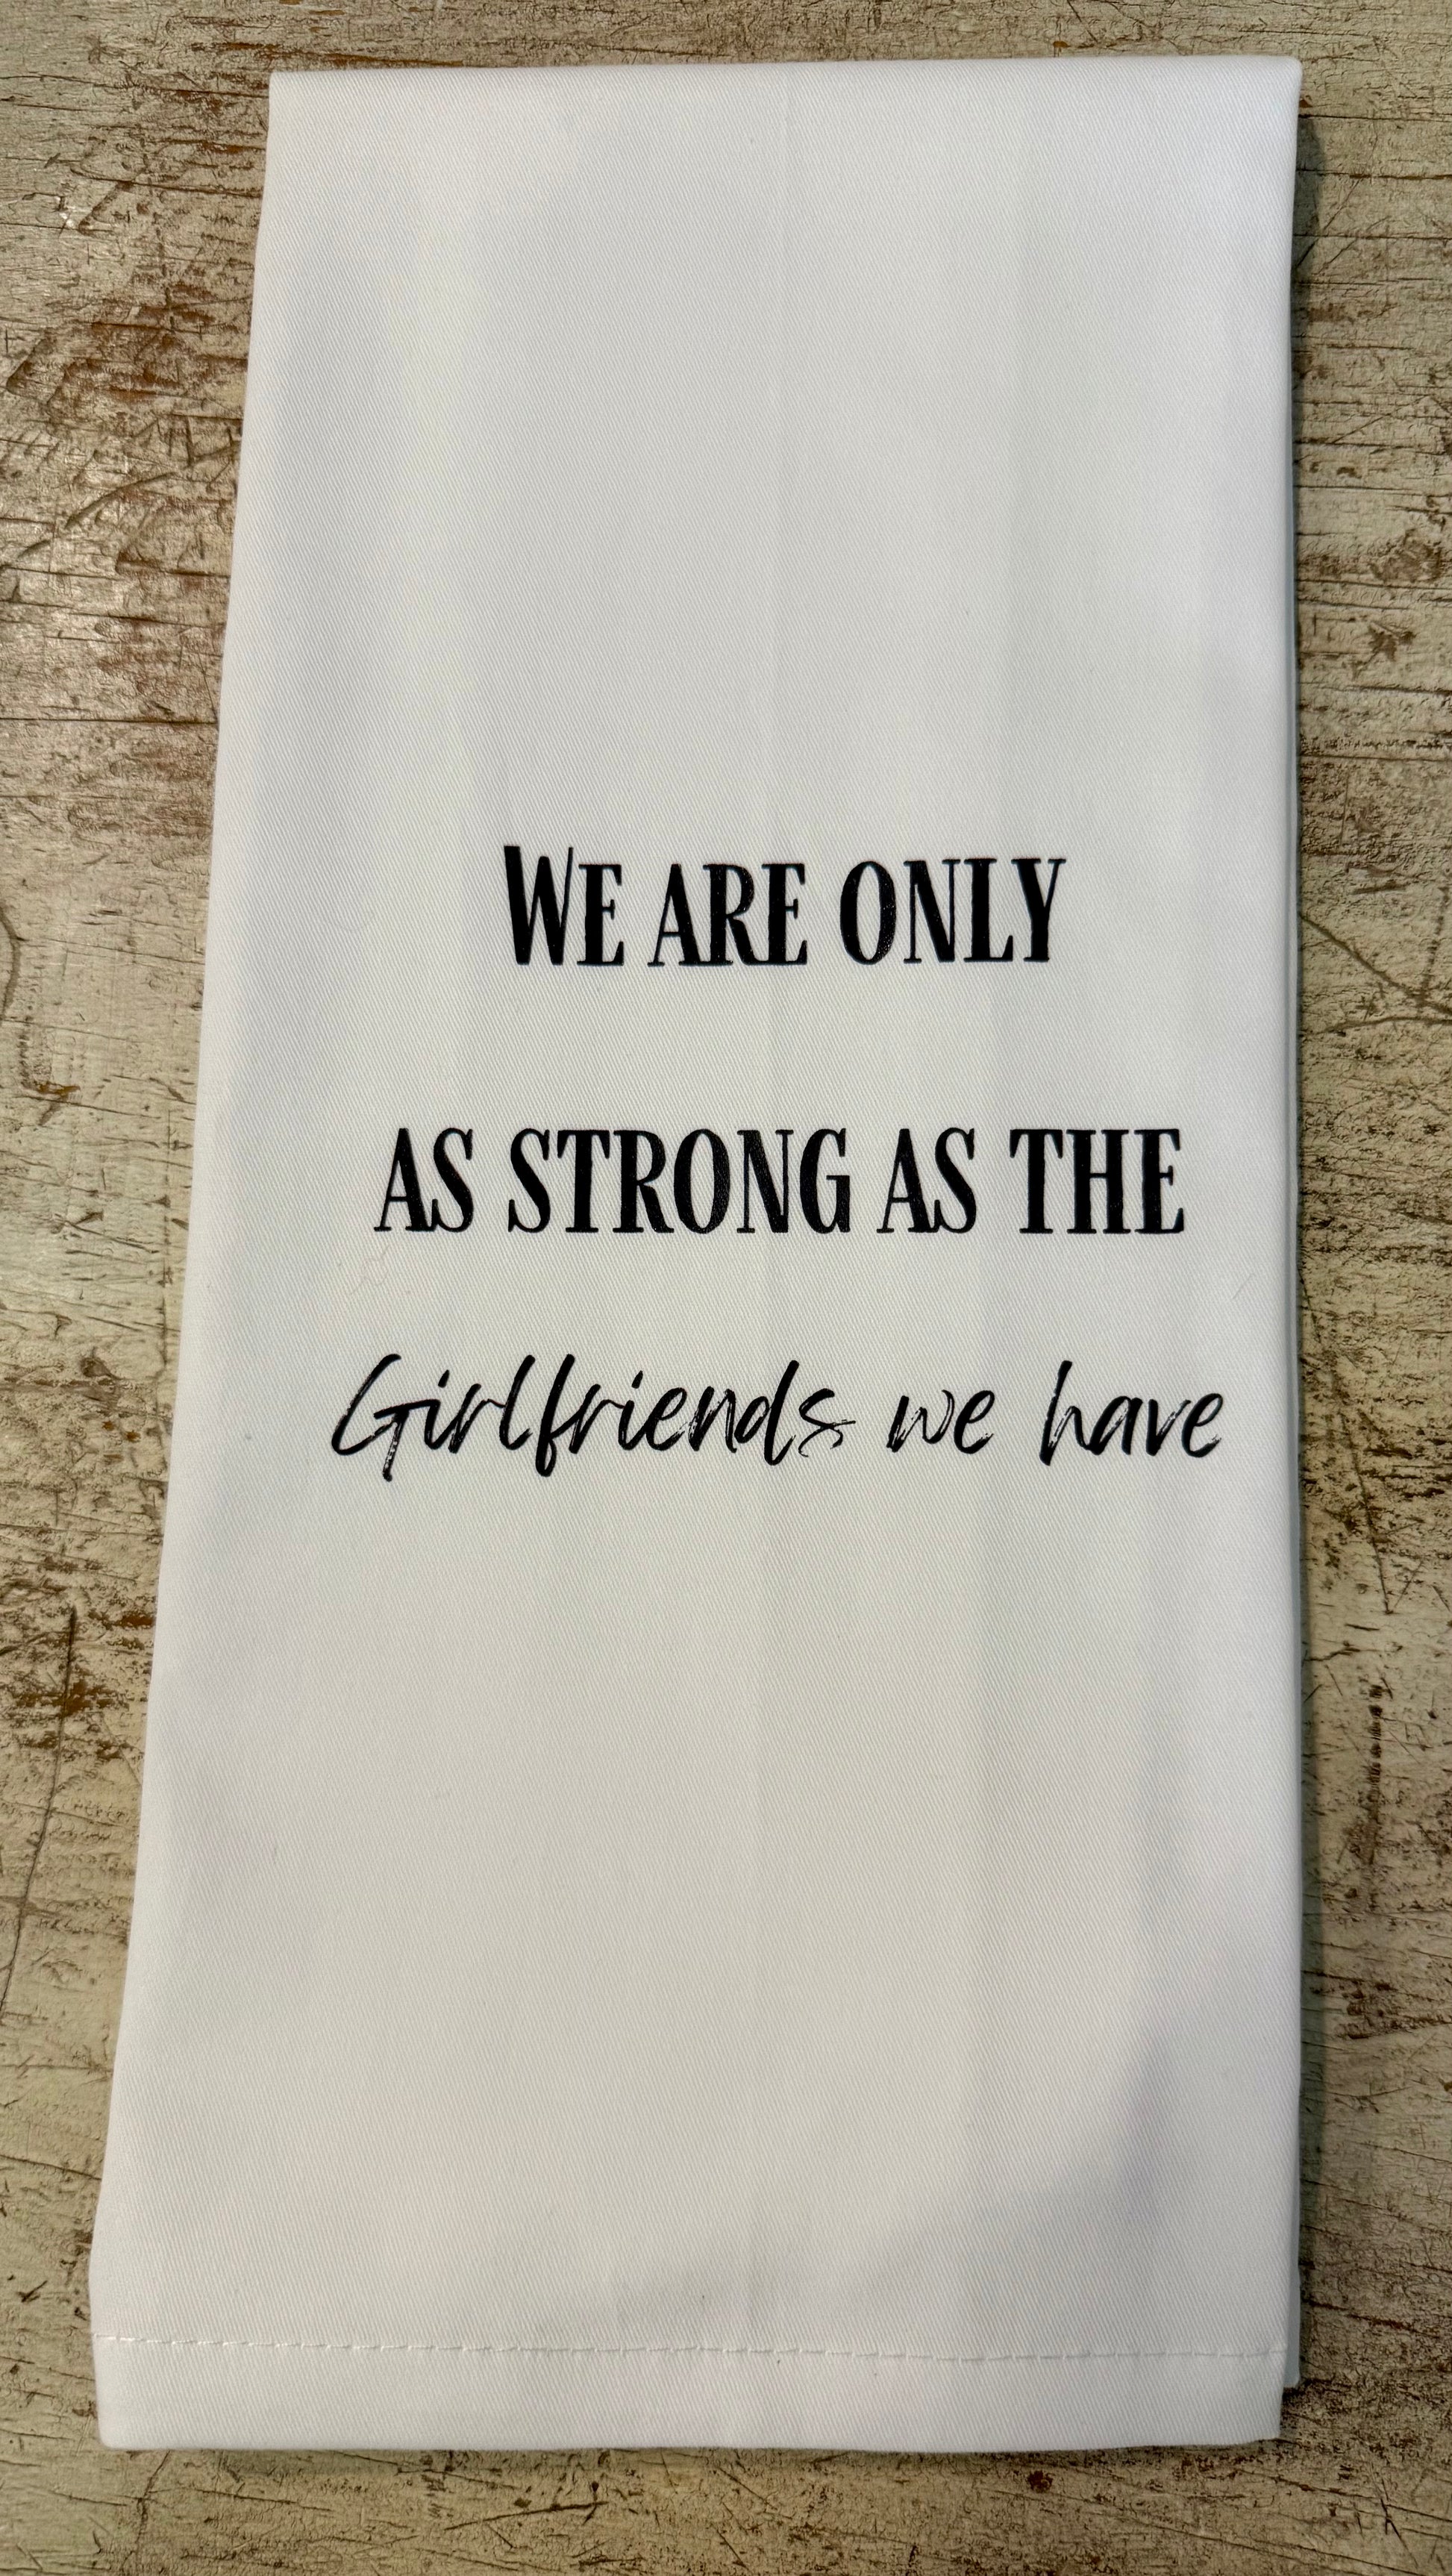 We are only
as strong as the
Girlfriends we have